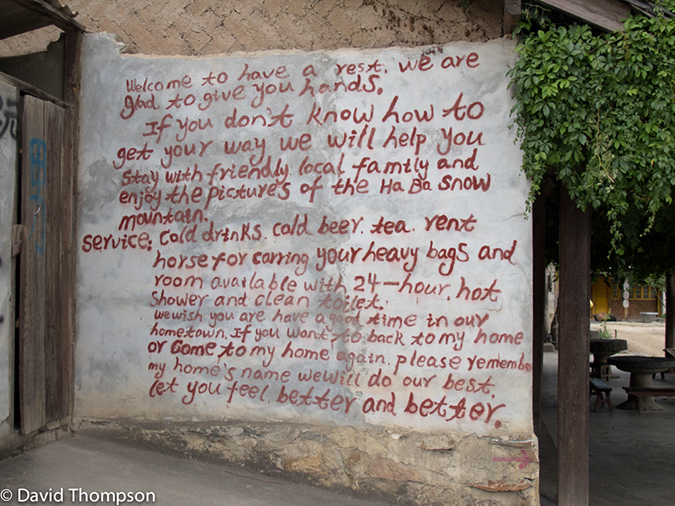 Welcome to have a rest. we are
glad to give you hands.
If you don't know how to
get your way we will help you
stay with friendly local family and
enjoy the pictures of the Ha Ba snow
mountain.
service: cold drinks. cold beer. tea. rent
horse for carring your heavy bags and
room available with 24-hour. hot
shower and clean toilet.
we wish you are have a good time in our
hometown. If you want to back to my home
or come to my home again. please remember
my home's name we will do our best.
let you feel better and better.
© David Thompson